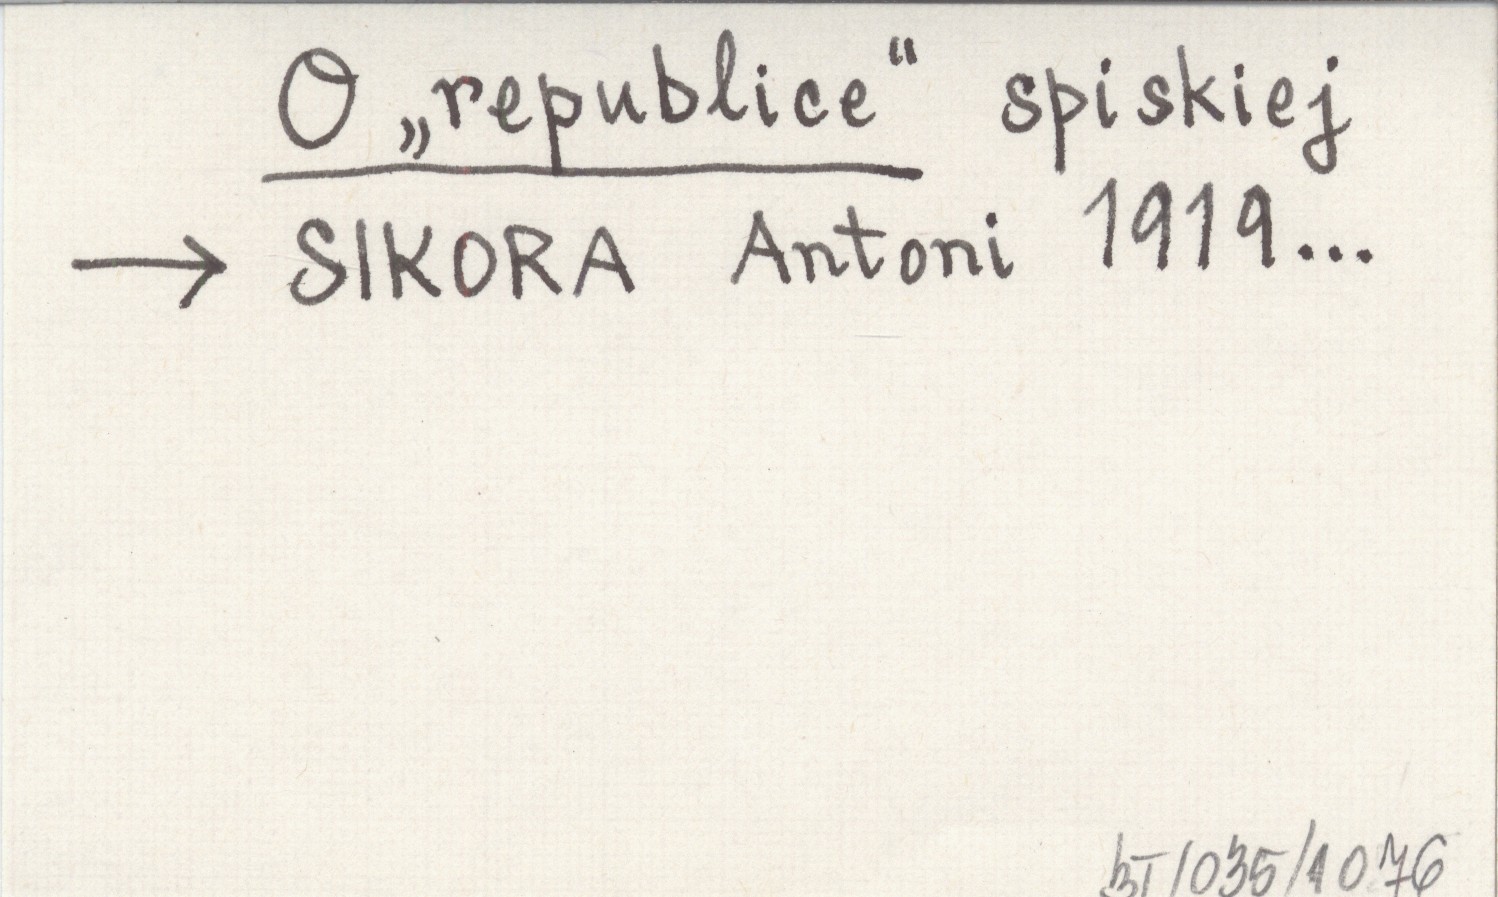 O „republice“ spiskiej
→ SIKORA Antoni 1919...
BT/035/1076